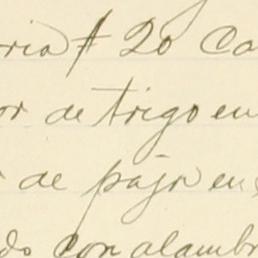 oria $ 20 Ca
or de trigo en
de paja en
do con alambr